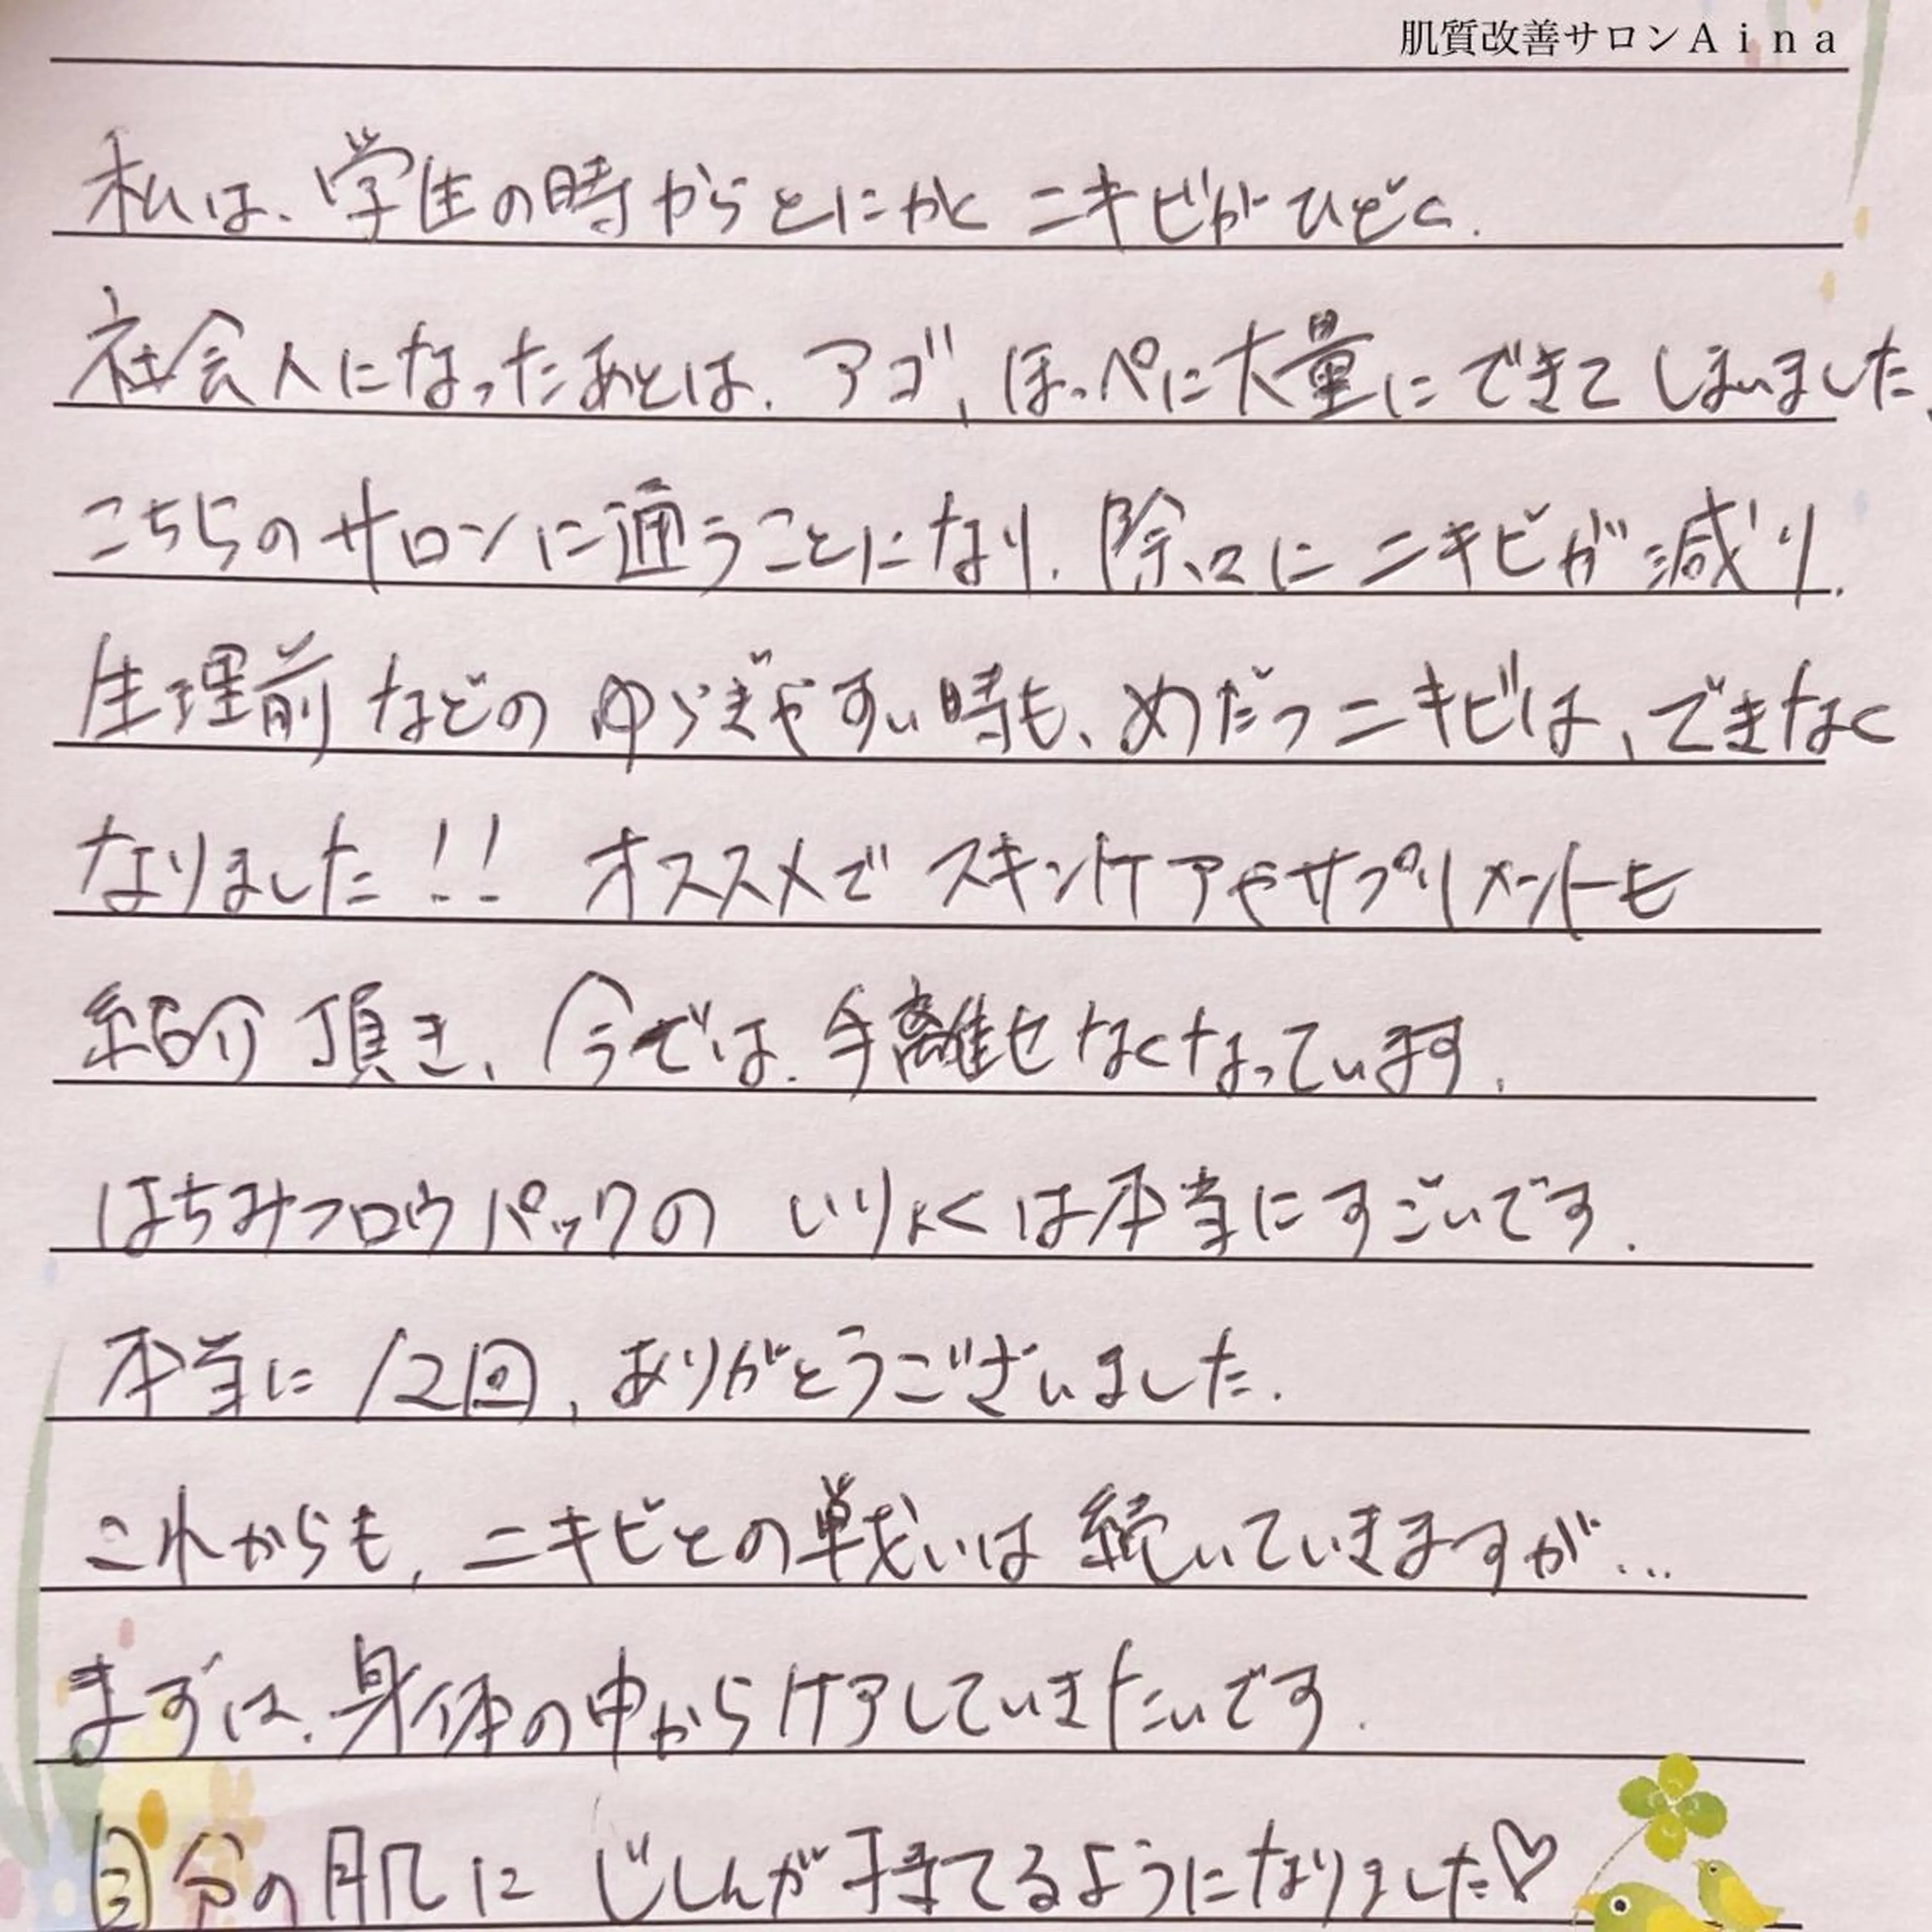 肌質改善サロンAina
私は、学生の時からとにかく ニキビがひどく、
社会人になったあとは、アゴ、ほっぺに大量にできてしまいました、
こちらのサロンに通うことになり、除々に ニキビが減り、
生理前などの ゆらぎやすい時も、めだつニキビは、できなく
なりました!! オススメで スキンケアやサプリメントも
紹介頂き、今では、手離せなくなっています。
はちみつロウパックの いりょくは本当にすごいです。
本当に12回、ありがとうございました。
これからも、ニキビとの戦いは続いていきますが…
まずは、身体の中からケアしていきたいです。
自分の肌に じしんが持てるようになりました♡